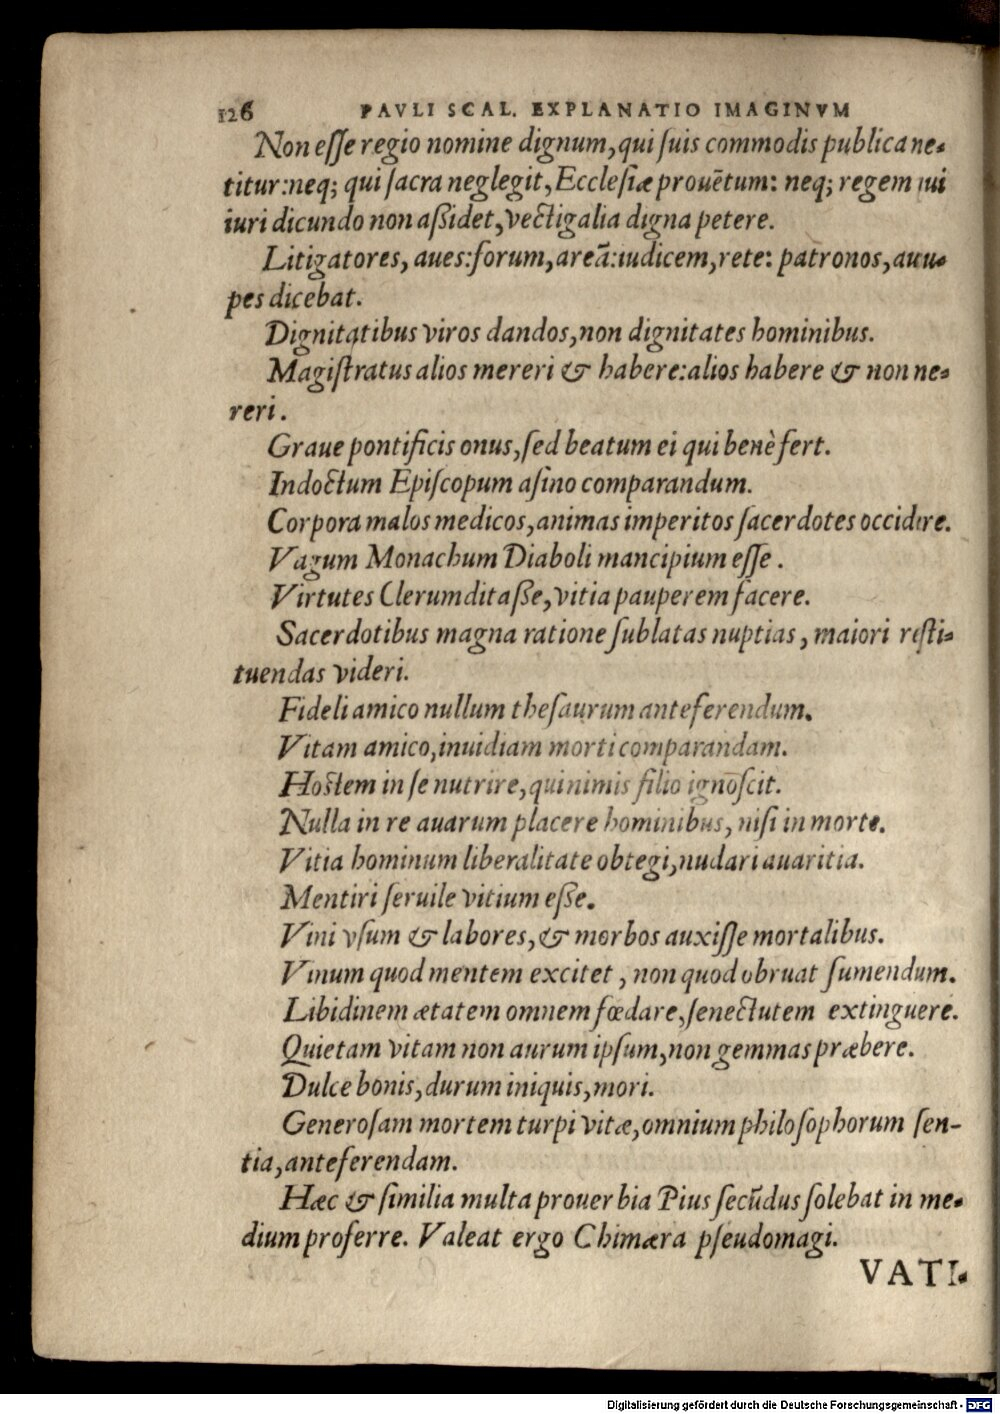 126 PAVLI SCAL. EXPLANATIO IMAGINVM
Non eſſe regio nomine dignum, qui ſuis commodis publica me-
titur: neq; qui ſacra neglegit, Eccleſiæ prouētum: neq; regem qui
iuri dicundo non aßidet, vectigalia digna petere.
Litigatores, aues: forum, areā: iudicem, rete: patronos, aucu-
pes dicebat.
Dignitatibus viros dandos, non dignitates hominibus.
Magiſtratus alios mereri & habere: alios habere & non me-
reri.
Graue pontificis onus, ſed beatum ei qui benè fert.
Indoctum Epiſcopum aſino comparandum.
Corpora malos medicos, animas imperitos ſacerdotes occidere.
Vagum Monachum Diaboli mancipium eſſe.
Virtutes Clerum ditaße, vitia pauperem facere.
Sacerdotibus magna ratione ſublatas nuptias, maiori reſti-
tuendas videri.
Fideli amico nullum theſaurum anteferendum.
Vitam amico, inuidiam morti comparandam.
Hoſtem in ſe nutrire, qui nimis filio ignoſcit.
Nulla in re auarum placere hominibus, niſi in morte.
Vitia hominum liberalitate obtegi, nudari auaritia.
Mentiri ſeruile vitium eße.
Vini vſum & labores, & morbos auxiſſe mortalibus.
Vinum quod mentem excitet, non quod obruat ſumendum.
Libidinem ætatem omnem fœdare, ſenectutem extinguere.
Quietam vitam non aurum ipſum, non gemmas præbere.
Dulce bonis, durum iniquis, mori.
Generoſam mortem turpi vitæ, omnium philoſophorum ſen-
tia, anteferendam.
Hæc & ſimilia multa prouerbia Pius ſecūdus ſolebat in me-
dium proferre. Valeat ergo Chimæra pſeudomagi.
VATI-
Digitalisierung gefördert durch die Deutsche Forschungsgemeinschaft - DFG